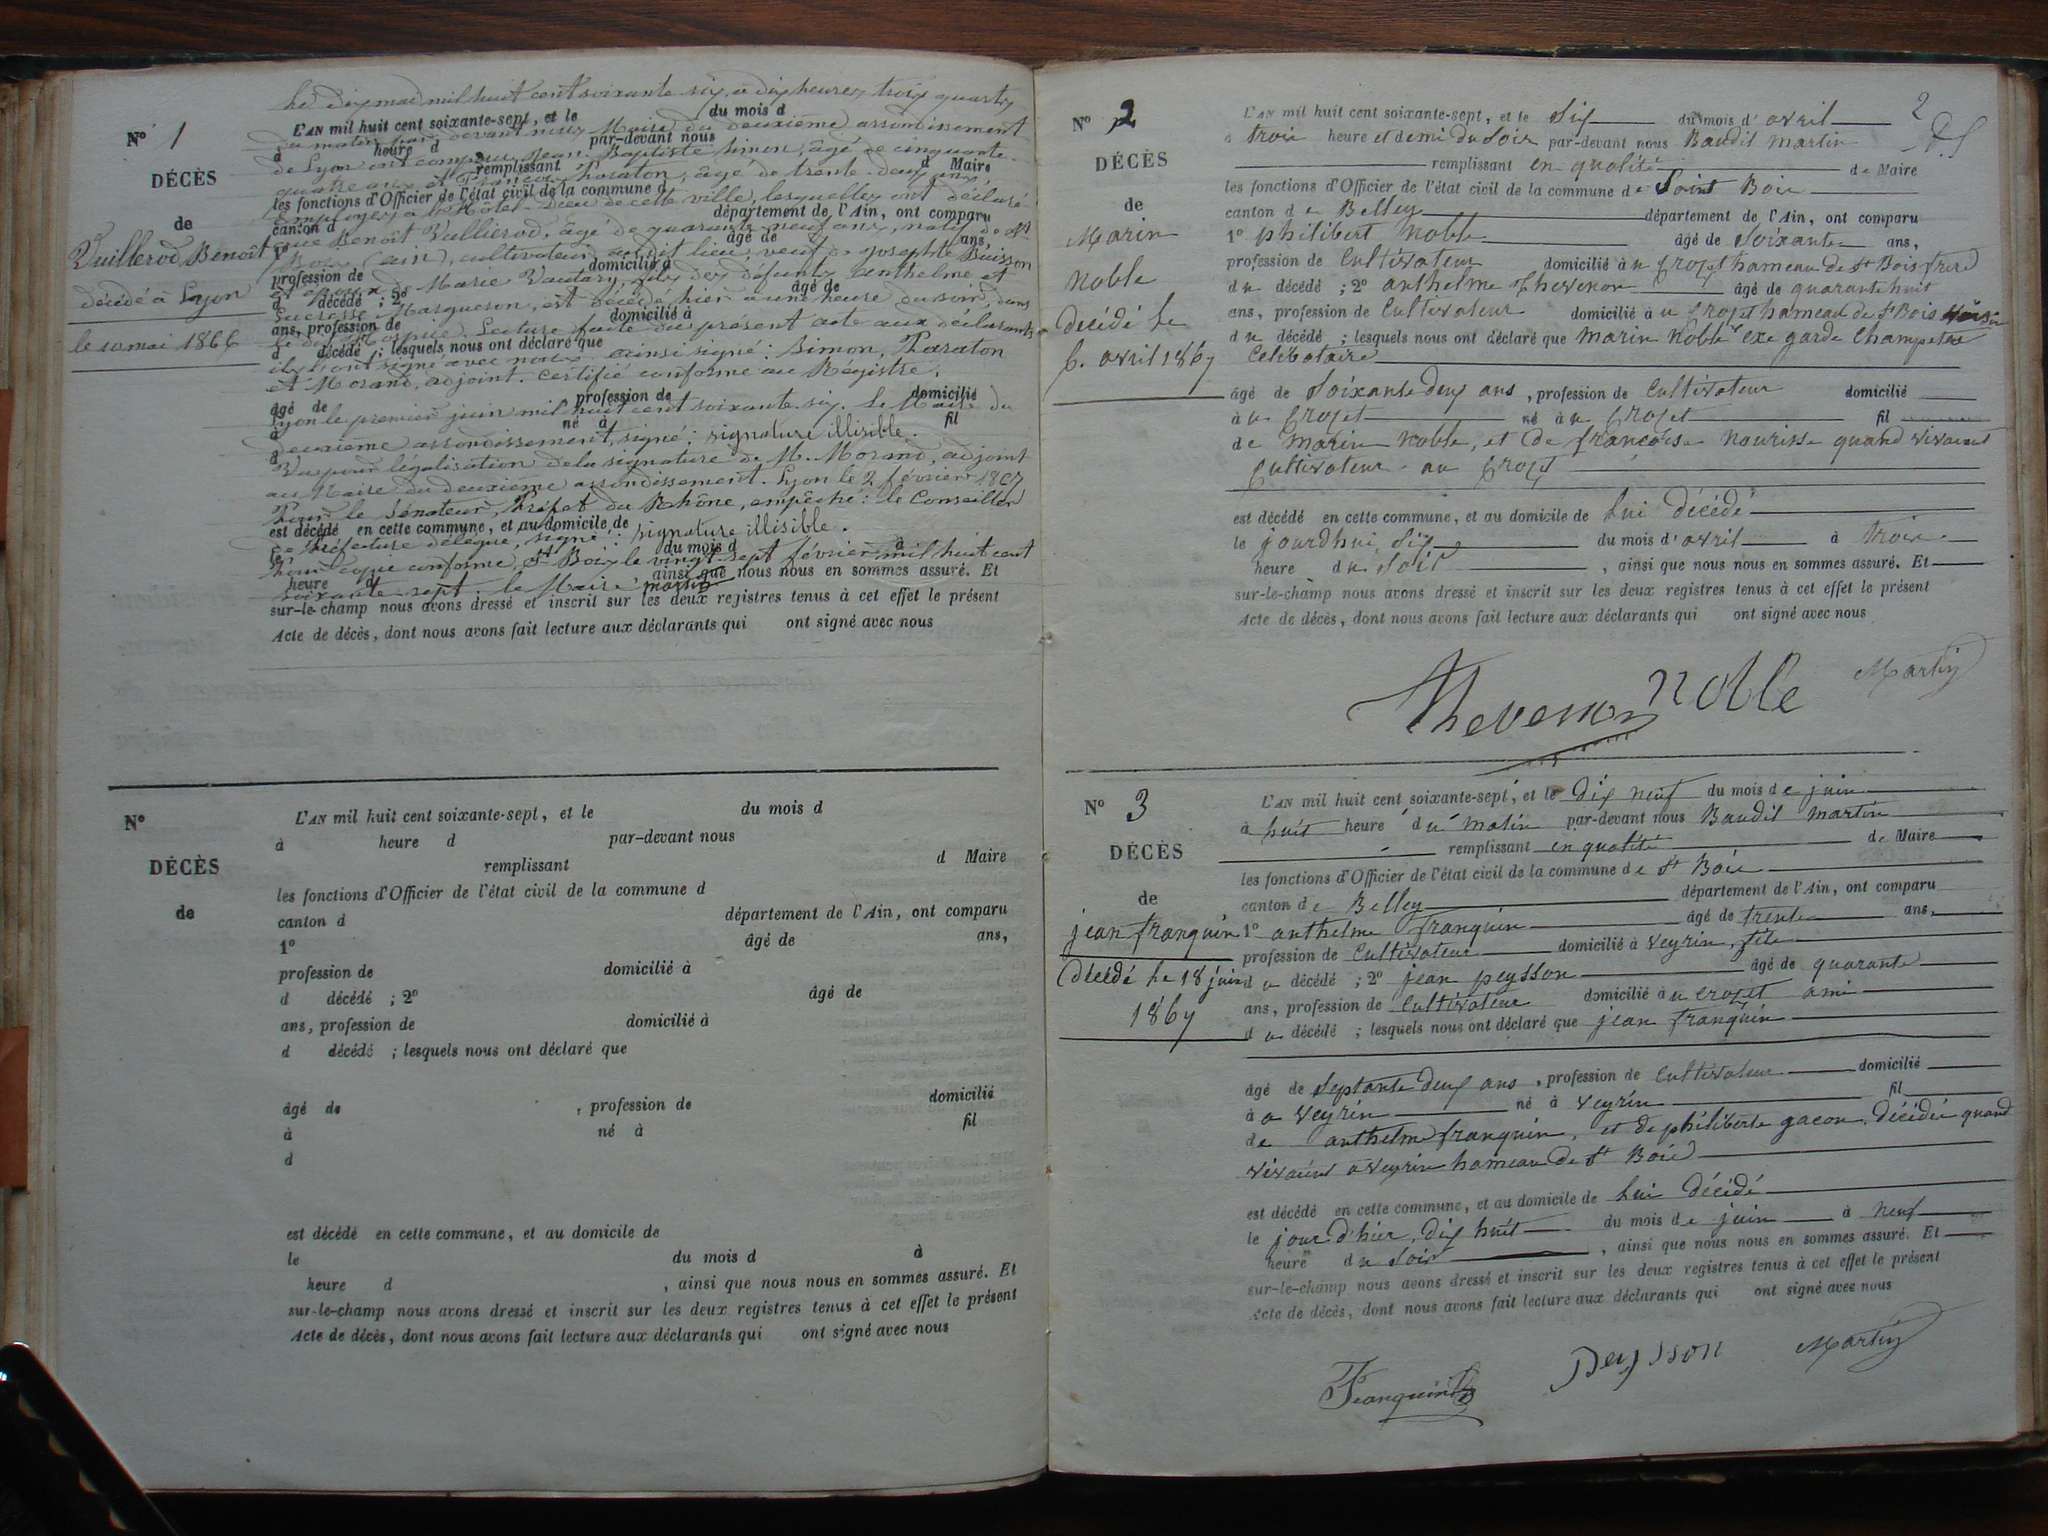 Le dix mai mil huit cent soixante six, à dix heures trois quarts
N° 1
L'AN mil huit cent soixante-sept, et le du mois d
du matin, par devant nous Maire du deuxième arrondissement
à heure d par-devant nous
de Lyon ont comparu Jean Baptiste Simon, âgé de cinquante
DÉCÈS
remplissant d Maire
quatre ans et François Paraton, âgé de trente-deux ans,
les fonctions d'Officier de l'état civil de la commune d
employés à l'Hôtel-Dieu de cette ville, lesquelles ont déclaré
de
canton d département de l'Ain, ont comparu
que Benoît Vuillerod, âgé de quarante neuf ans, natif de St
1° âgé de ans,
Vuillerod Benoît
Bois (ain), cultivateur audit lieu, veuf de Josephte Buisson
profession de domicilié à
et époux de Marie Vautary, fils des défunts Anthelme et
décédé à Lyon
d décédé ; 2° âgé de
Lucresse Marqueson, est décédé hier à une heure du soir, dans
ans, profession de domicilié à
le dit Hospice. Lecture faite du présent acte aux déclarants
le 10 mai 1866
d décédé ; lesquels nous ont déclaré que
ils ont signé avec nous. ainsi signé : Simon, Paraton
et Morand, adjoint. Certifié conforme au Registre.
âgé de profession de domicilié
Lyon le premier juin mil huit cent soixante-six. Le Maire du
à né à fil
deuxième arrondissement, signé : signature illisible.
d
Vu pour légalisation de la signature de M. Morand, adjoint
au Maire du deuxième arrondissement. Lyon le 2 février 1867
Pour le Sénateur, Préfet du Rhône, empêché : le Conseiller
est décédé en cette commune, et au domicile de
de Préfecture délégué, signé : signature illisible.
le du mois d à
Pour copie conforme, St Bois, le vingt-sept février mil huit cent
heure d ainsi que nous nous en sommes assuré. Et
soixante-sept. le Maire Martin
sur-le-champ nous avons dressé et inscrit sur les deux registres tenus à cet effet le présent
Acte de décès, dont nous avons fait lecture aux déclarants qui ont signé avec nous
N°
L'AN mil huit cent soixante-sept, et le du mois d
à heure d par-devant nous
DÉCÈS
remplissant d Maire
les fonctions d'Officier de l'état civil de la commune d
de
canton d département de l'Ain, ont comparu
1° âgé de ans,
profession de domicilié à
d décédé ; 2° âgé de
ans, profession de domicilié à
d décédé ; lesquels nous ont déclaré que
âgé de , profession de domicilié
à né à fil
d
est décédé en cette commune, et au domicile de
le du mois d à
heure d , ainsi que nous nous en sommes assuré. Et
sur-le-champ nous avons dressé et inscrit sur les deux registres tenus à cet effet le présent
Acte de décès, dont nous avons fait lecture aux déclarants qui ont signé avec nous
2
N° 2
L'AN mil huit cent soixante-sept, et le Six du mois d'avril
à trois heure et demi du Soir par-devant nous Baudit Martin
DÉCÈS
remplissant en qualité de Maire
les fonctions d'Officier de l'état civil de la commune de Saint Bois
de
canton de Belley département de l'Ain, ont comparu
Marin
1° philibert Noble âgé de Soixante ans,
profession de Cultivateur domicilié à u Crozet hameau de St Bois frere
Noble
du décédé ; 2° anthelme Thevenon âgé de quarante huit
décédé le
ans, profession de Cultivateur domicilié à u Crozet hameau de St Bois voisin
du décédé ; lesquels nous ont déclaré que Marin Noble exe garde Champetre
6. avril 1867
Celibataire
âgé de Soixante deux ans , profession de Cultivateur domicilié
à u Crozet né à u Crozet fil
de Marin Noble, et de francoise Nourisse quand vivaient
Cultivateur au Crozet
est décédé en cette commune, et au domicile de Lui Décédé
le jourdhui Six du mois d'avril à trois
heure du Soir , ainsi que nous nous en sommes assuré. Et
sur-le-champ nous avons dressé et inscrit sur les deux registres tenus à cet effet le présent
Acte de décès, dont nous avons fait lecture aux déclarants qui ont signé avec nous
Thevenon Noble Martin
N° 3
L'AN mil huit cent soixante-sept, et le Dix neuf du mois de juin
à huit heure du matin par-devant nous Baudit Martin
DÉCÈS
remplissant en qualité de Maire
les fonctions d'Officier de l'état civil de la commune de St Bois
de
canton de Belley département de l'Ain, ont comparu
jean franquin
1° anthelme franquin âgé de trente ans,
profession de Cultivateur domicilié à Veyrin, fils
Décédé le 18 juin
du décédé ; 2° jean peysson âgé de quarante
1867
ans, profession de Cultivateur domicilié à u crozet ami
du décédé ; lesquels nous ont déclaré que jean franquin
âgé de Septante deux ans , profession de Cultivateur domicilié
à a Veyrin né à Veyrin fil
de anthelme franquin, et de philiberte gacon Décédée quand
vivaint a Veyrin hameau de St Bois
est décédé en cette commune, et au domicile de Lui Décédé
le jour d'hier, Dix huit du mois de juin à neuf
heure du Soir , ainsi que nous nous en sommes assuré. Et
sur-le-champ nous avons dressé et inscrit sur les deux registres tenus à cet effet le présent
Acte de décès, dont nous avons fait lecture aux déclarants qui ont signé avec nous
Franquin Peysson Martin